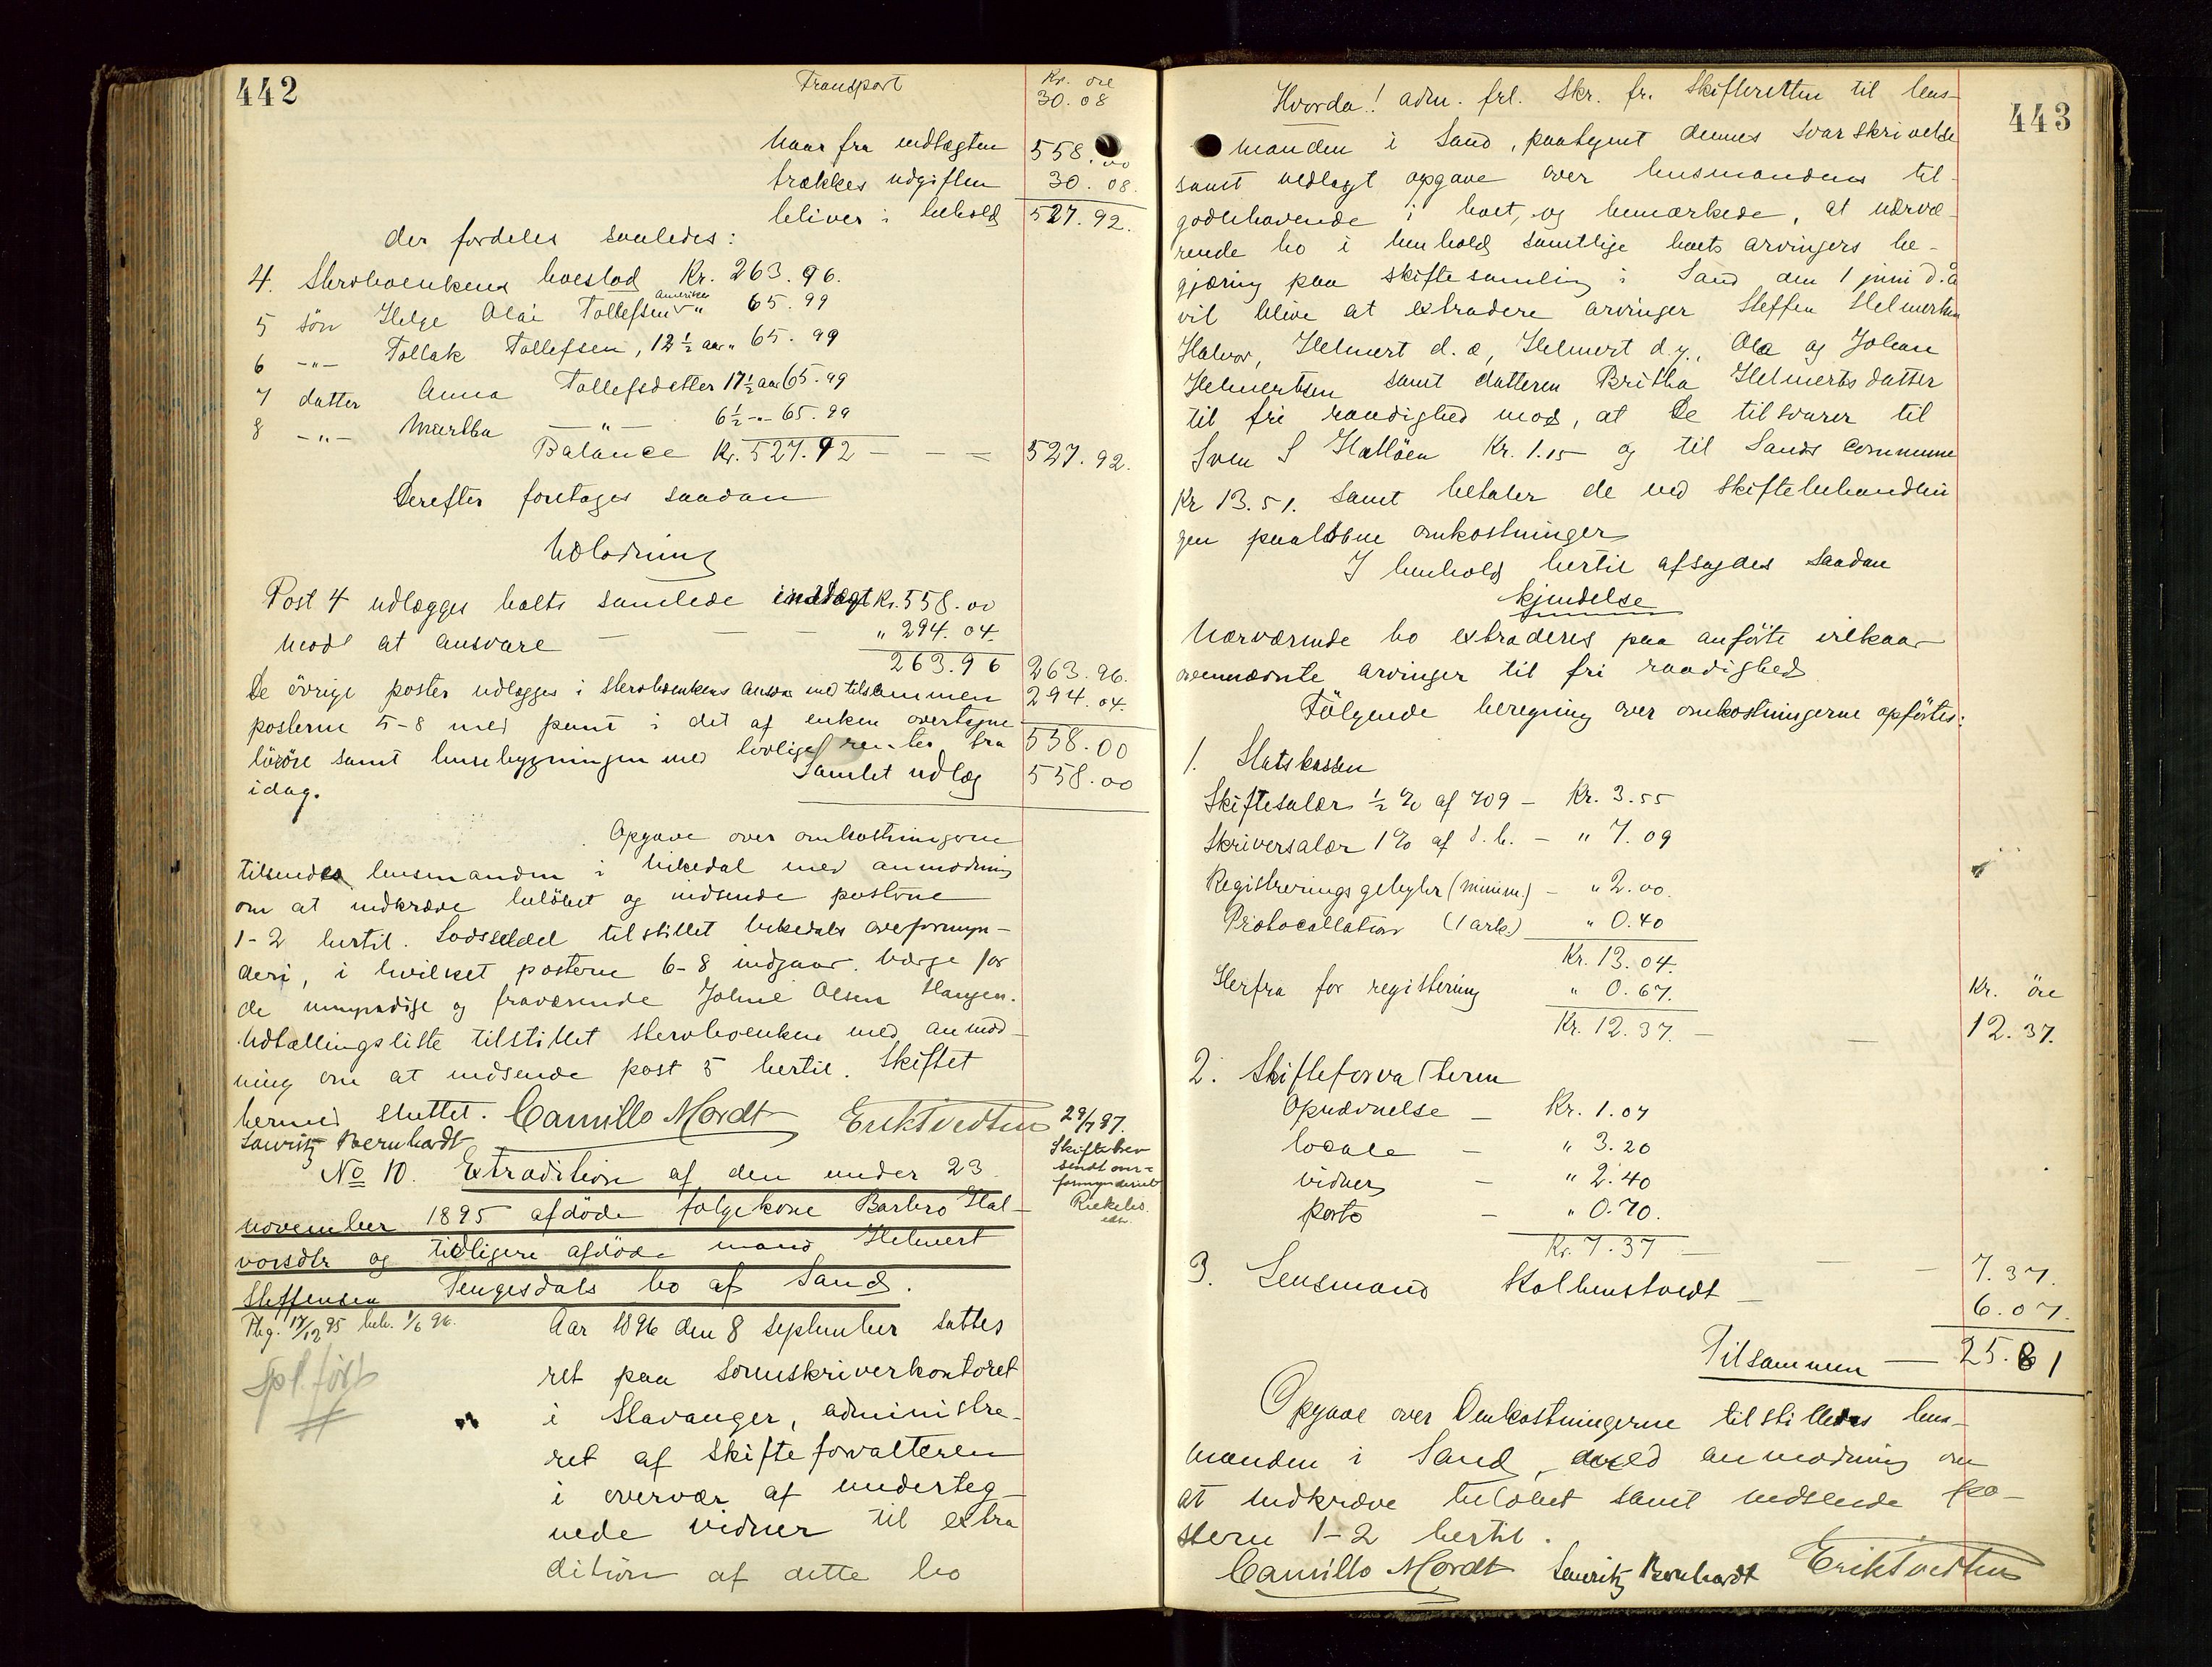 442
Transport
Kr. öre
30.08
Naar fra indtægten 558.00
trækkes udgiften 30.08.
bliver i behold 527.92.
der fordeles saaledes:
4. Stervboenkens boeslod Kr. 263.96.
5 sön Helge Olai Tollefsen Amerika " 65.99
6 -"- Tollak Tollefsen, 12 ½ aar " 65.99
7 datter Anna Tollefsdatter 17½ aar 65.99
8 -"- Martha -"- 6½ -"- 65.99
Balance Kr. 527.92 — — — 527.92.
Derefter foretages saadan
Udlodning
Post 4 udlægges boets samlede indtægt Kr. 558.00
mod at ansvare — — — " 294.04.
263.96 263.96.
De övrige poster udlægges i stervboenkens ansvar med tilsammen 294.04.
posterne 5-8 med pant i det af enken overtagne
558.00
lösöre samt husebygningen med lovlige renter fra
idag.
Samlet udlæg 558.00
Opgave over omkostningerne
tilsendes lensmanden i Vikedal med anmodning
om at indkræve belöbet og indsende posterne
1-2 hertil. Lodseddel tilstillet Vikedals overformyn-
deri, i hvilket posterne 6-8 indgaar. Værge for
de umyndige og fraværende Johne Olsen Haugen.
Udtællingsliste tilstillet stervboenken med anmod-
ning om at indsende post 5 hertil. Skiftet
hermed sluttet. Camillo Mordt Erik Tvedten
Lauritz Bernhardt
29/7 97.
Skiftebrev
sendt over-
formynderiet
No 10. Extradition af den under 23
november 1895 afdöde folgekone Barbro Hal-
vorsdtr og tidligere afdöde mand Helmert
Steffensen Tengesdals bo af Sand.
Thg. 17/12 95 beh. 1/6 96.
Spl. fört
Aar 1896 den 8 september sattes
ret paa sorenskriverkontoret
i Stavanger, administre-
ret af skifteforvalteren
i overvær af underteg-
nede vidner til extra
dition af dette bo
443
Hvorda! adm. frl. Skr. fr. Skifteretten til lens-
manden i Sand, paategnet dennes svarskrivelse
samt vedlagt opgave over lensmandens til-
godehavende i boet, og bemærkede, at nærvæ-
rende bo i henhold samtlige boets arvingers be-
gjæring paa skiftesamling i Sand den 1 juni d.å
vil blive at extradere arvinger Steffen Helmertsen
Halvor, Helmert d.æ, Helmert d.y., Ola og Johan
Helmertsen samt datteren Britha Helmertsdatter
til fri raadighed mod, at de tilsvarer til
Sven S Hatlöen Kr. 1.15 og til Sands commune
Kr 13.51. samt betaler de ved skiftebehandlin
gen paalöbne omkostninger
I henhold hertil afsagdes saadan
kjendelse
Nærværende bo extraderes paa anförte vilkaar
ovennævnte arvinger til fri raadighed.
Fölgende beregning over omkostningerne opförtes:
1. Statskassen
Skiftesalær ½ % af 709 — Kr. 3.55
Skriversalær 1 % af s.b. — " 7.09
Registreringsgebyhr (minim.) — " 2.00.
Protocollation (1 ark.) " 0.40
Kr. 13.04.
Herfra for registrering " 0.67.
Kr. öre
Kr. 12.37. — — 12.37.
2. Skifteforvalteren
Opnævnelse — Kr. 1.07
locale — " 3.20
vidner — " 2.40
porto — " 0.70.
Kr. 7.37 — — — 7.37.
3. Lensmand Kolbenstvedt — 6.07.
Tilsammen — 25.81
Opgave over Omkostningerne tilstilledes lens-
manden i Sand, med anmodning om
at indkræve belöbet samt indsende po-
sterne 1-2 hertil.
Camillo Mordt Lauritz Bernhardt Erik Tvedten